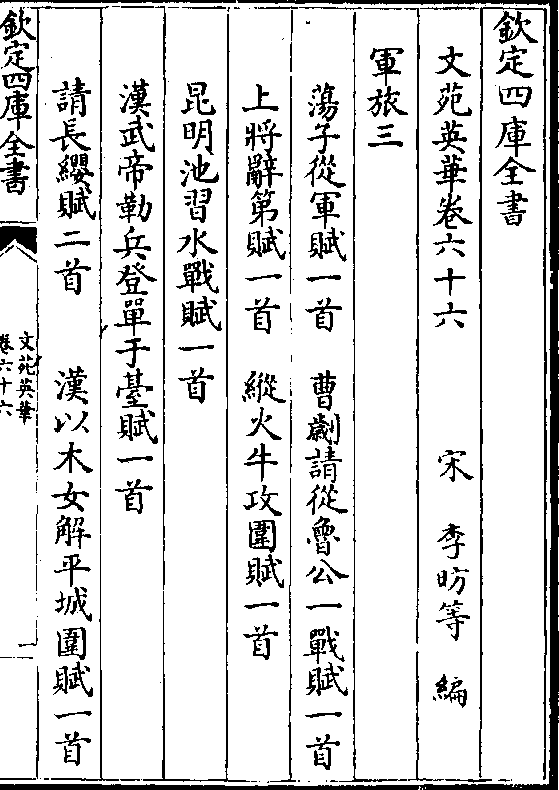 欽定四庫全書
文苑英華卷六十六 宋 李昉等 編
軍旅三
蕩子從軍賦一首 曹劌請從魯公一戰賦一首
上將辭第賦一首 縱火牛攻圍賦一首
昆明池習水戰賦一首
漢武帝勒兵登單于臺賦一首
請長纓賦二首 漢以木女解平城圍賦一首
欽定四庫全書
文苑英華
卷六十六
一